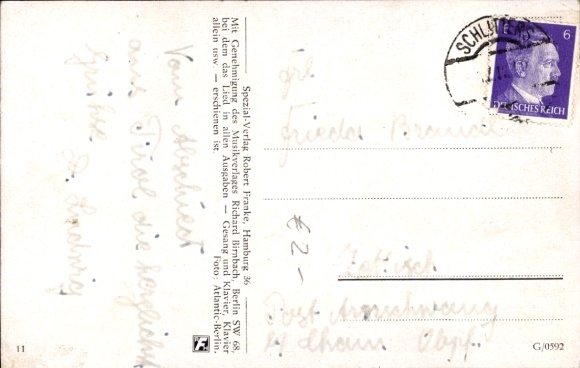 Vom Abschied
aus Tirol die herzlichst
Grüße
D. Ludwig
Spezial-Verlag Robert Franke, Hamburg 36
Mit Genehmigung des Musikverlages Richard Birnbach, Berlin SW 68,
bei dem das Lied in allen Ausgaben — Gesang und Klavier, Klavier
allein usw. — erschienen ist. Foto: Atlantic-Berlin.
SCHLITTERS
6
DEUTSCHES REICH
Frl.
Frieda
€ 2-
Post Arnschwang
Cham Obpf.
11
F
G/0592